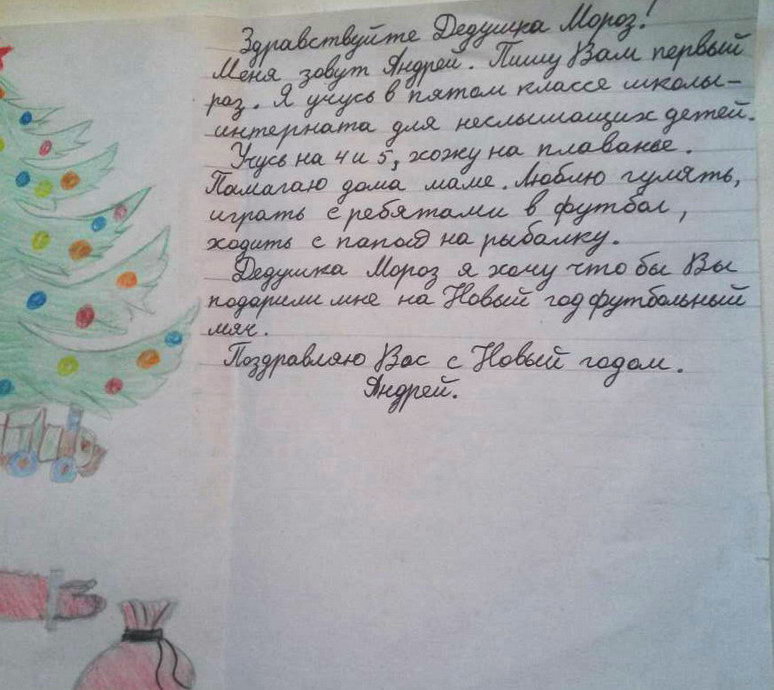 Здравствуйте Дедушка Мороз!
Меня зовут Андрей. Пишу Вам первый
раз. Я учусь в пятом классе школы-
интерната для неслышащих детей.
Учусь на 4 и 5, хожу на плаванье.
Памагаю дома маме. Люблю гулять,
играть с ребятами в футбол,
ходить с папой на рыбалку.
Дедушка Мороз я хочу что бы Вы
подарили мне на Новый год футбольный
мяч.
Поздравляю Вас с Новый годом.
Андрей.